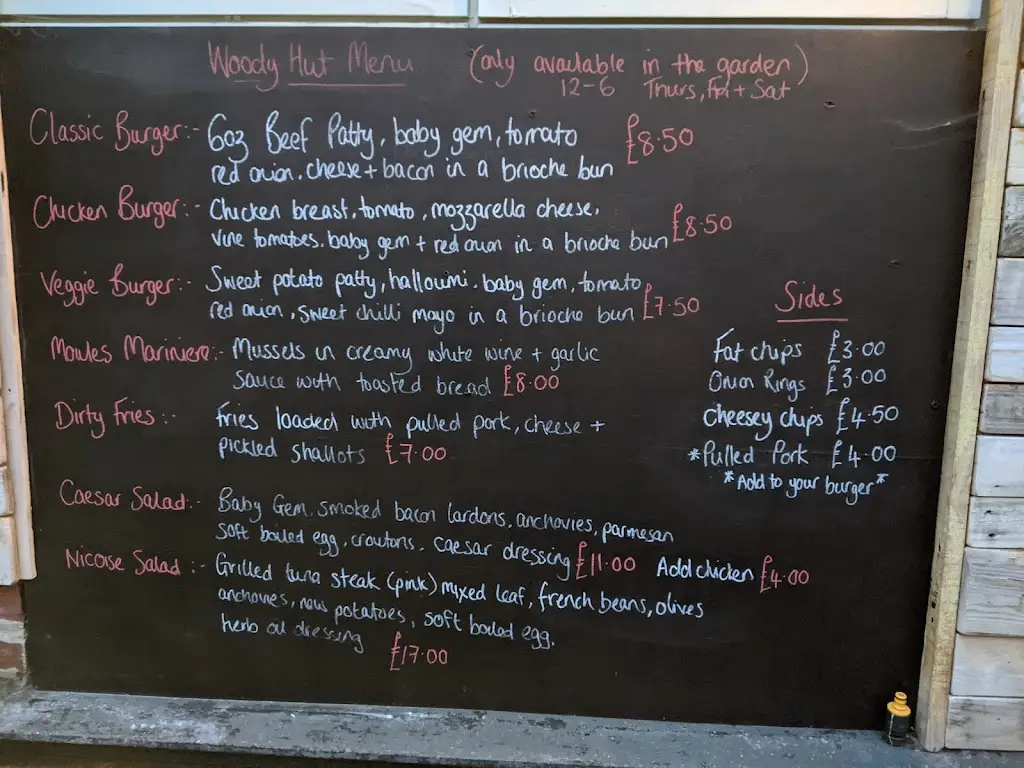 Woody Hut Menu (only available in the garden)
12-6 Thurs, Fri + Sat
Classic Burger:- 6oz Beef Patty, baby gem, tomato £8.50
red onion, cheese + bacon in a brioche bun
Chicken Burger:- Chicken breast, tomato, mozzarella cheese,
vine tomatoes, baby gem + red onion in a brioche bun £8.50
Veggie Burger:- Sweet potato patty, halloumi, baby gem, tomato
red onion, sweet chilli mayo in a brioche bun £7.50
Moules Mariniere:- Mussels in creamy white wine + garlic
sauce with toasted bread £8.00
Dirty Fries:- Fries loaded with pulled pork, cheese +
pickled shallots £7.00
Caesar Salad:- Baby Gem, smoked bacon lardons, anchovies, parmesan
soft boiled egg, croutons, caesar dressing £11.00 Add chicken £4.00
Nicoise Salad:- Grilled tuna steak (pink) mixed leaf, french beans, olives
anchovies, new potatoes, soft boiled egg,
herb oil dressing £17.00
Sides
Fat chips £3.00
Onion Rings £3.00
Cheesey chips £4.50
*Pulled Pork £4.00
*Add to your burger*